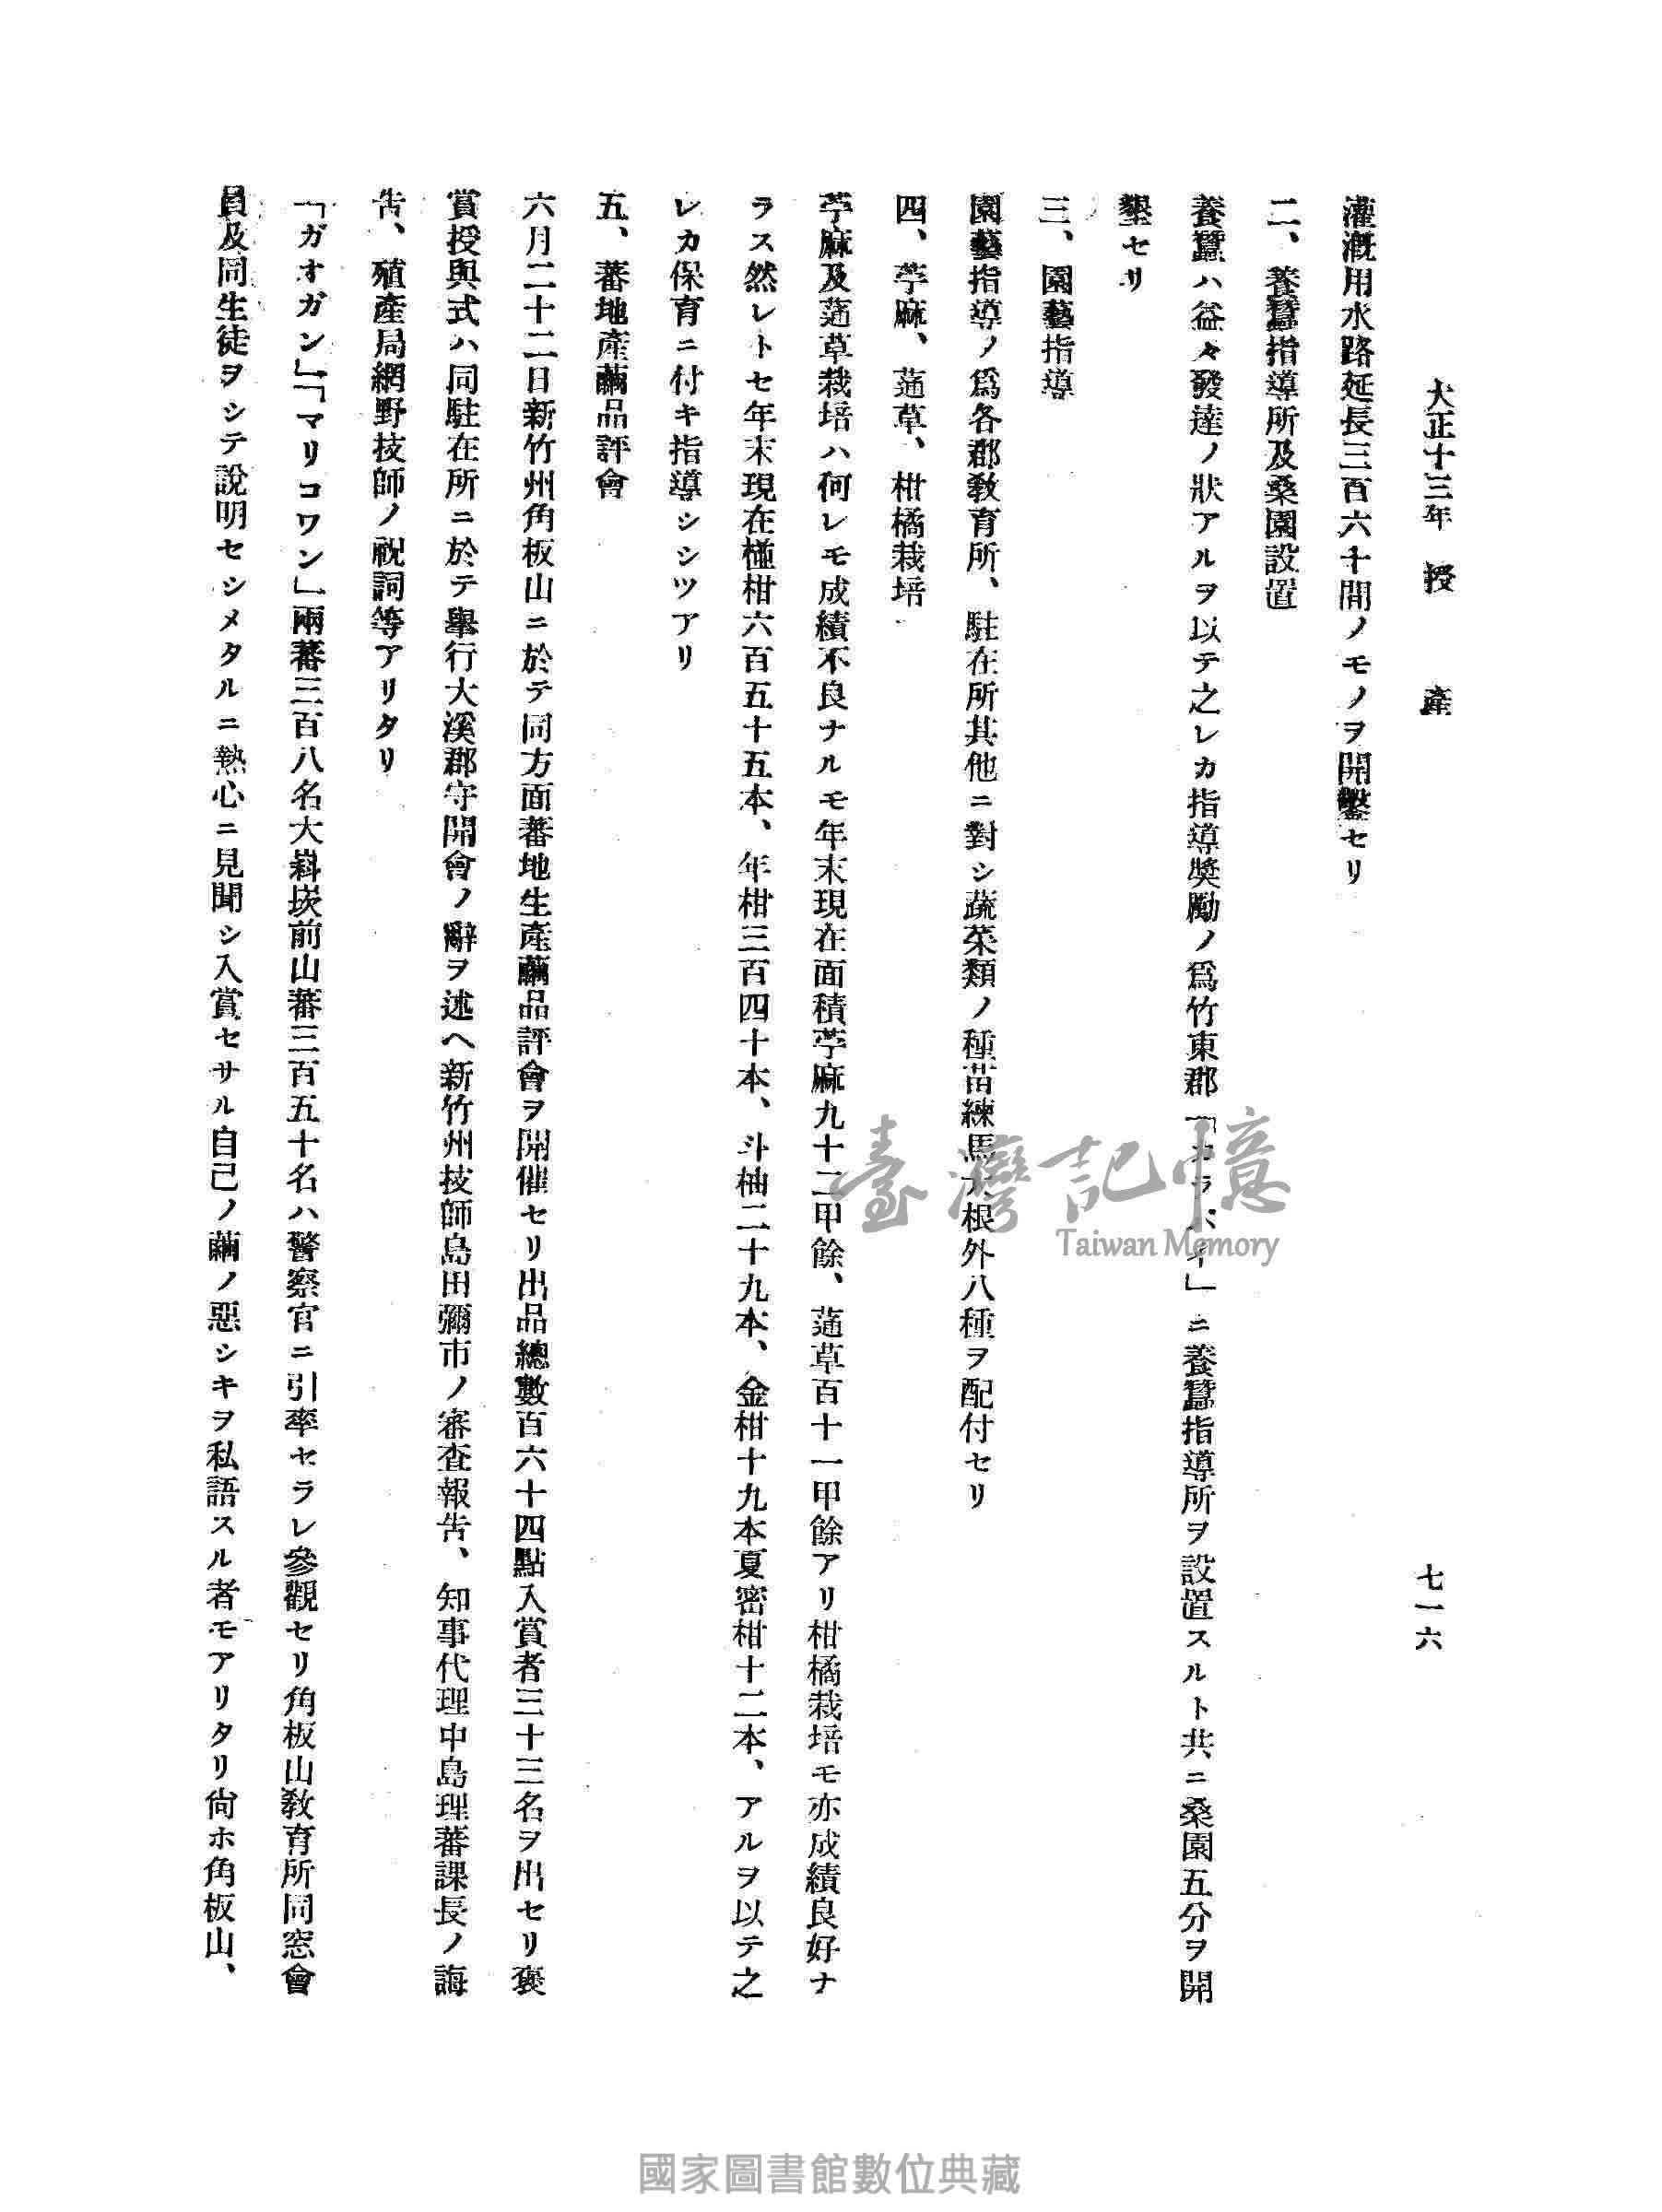 大正十三年 授 產
七一六
灌漑用水路延長三百六十間ノモノヲ開鑿セリ
二、養蠶指導所及桑園設置
養蠶ハ益々發達ノ狀アルヲ以テ之レカ指導獎勵ノ爲竹東郡「 」ニ養蠶指導所ヲ設置スルト共ニ桑園五分ヲ開
墾セリ
三、園藝指導
園藝指導ノ爲各郡敎育所、駐在所其他ニ對シ蔬菜類ノ種苗練馬大根外八種ヲ配付セリ
四、苧麻、蓪草、柑橘栽培
苧麻及蓪草栽培ハ何レモ成績不良ナルモ年末現在面積苧麻九十二甲餘、蓪草百十一甲餘アリ柑橘栽培モ亦成績良好ナ
ラス然レトセ年末現在椪柑六百五十五本、年柑三百四十本、斗柚二十九本、金柑十九本夏密柑十二本、アルヲ以テ之
レカ保育ニ付キ指導シシツアリ
五、蕃地產繭品評會
六月二十二日新竹州角板山ニ於テ同方面蕃地生產繭品評會ヲ開催セリ出品總數百六十四點入賞者三十三名ヲ出セリ褒
賞授與式ハ同駐在所ニ於テ擧行大溪郡守開會ノ辭ヲ述ヘ新竹州技師島田彌市ノ審査報告、知事代理中島理蕃課長ノ誨
告、殖產局網野技師ノ祝詞等アリタリ
「ガオガン」「マリコワン」兩蕃三百八名大嵙崁前山蕃三百五十名ハ警察官ニ引率セラレ參觀セリ角板山敎育所同窓會
員及同生徒ヲシテ說明セシメタルニ熱心ニ見聞シ入賞セサル自己ノ繭ノ惡シキヲ私語スル者モアリタリ尙ホ角板山、
臺灣記憶
Taiwan Memory
國家圖書館數位典藏